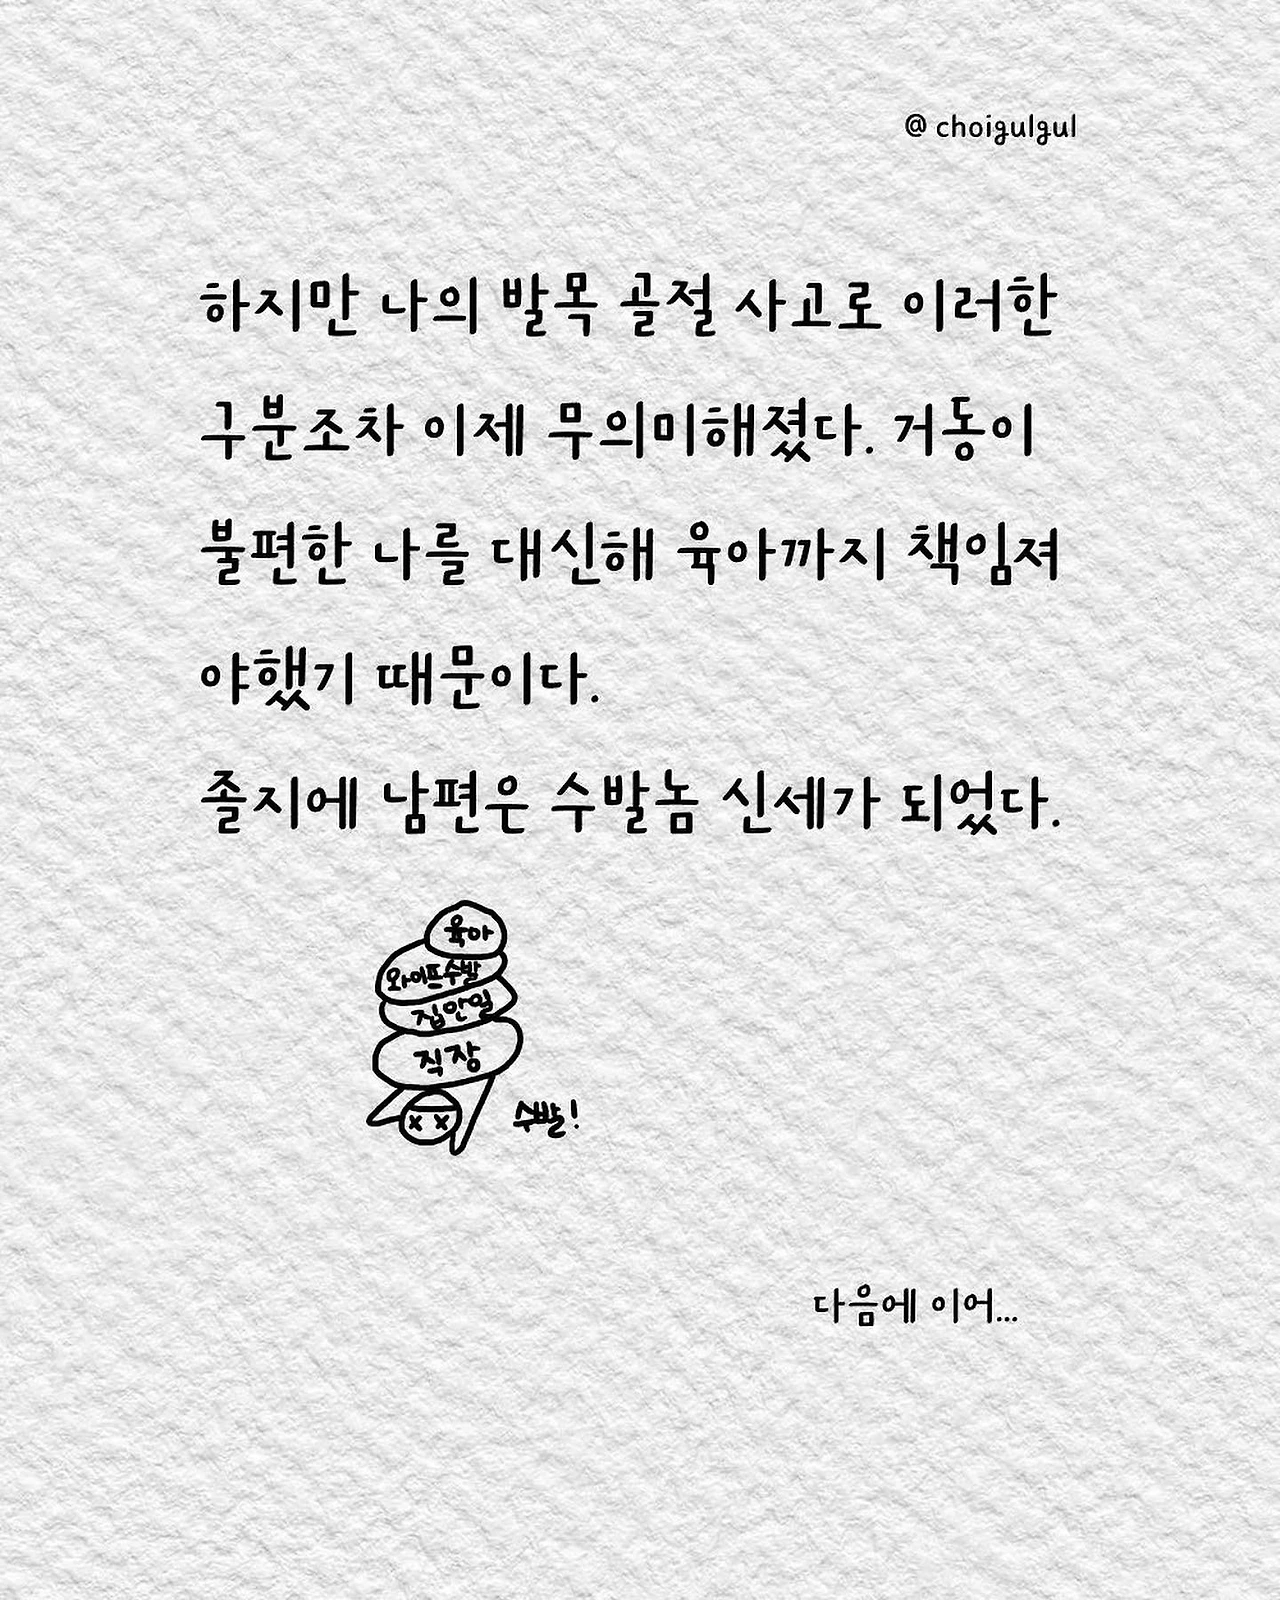 @ choigulgul
하지만 나의 발목 골절 사고로 이러한
구분조차 이제 무의미해졌다. 거동이
불편한 나를 대신해 육아까지 책임져
야했기 때문이다.
졸지에 남편은 수발놈 신세가 되었다.
육아
와이프수발
집안일
직장
수발!
다음에 이어...